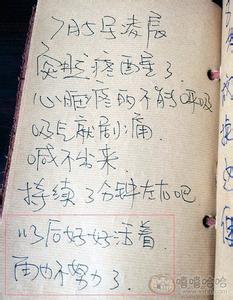 7月5号凌晨
脏疼醒了
心脏疼的不能呼吸
吸气就剧痛
喊不出来
持续3分钟左右吧
以后好好活着.
再也不努力了.
嘻嘻哈哈